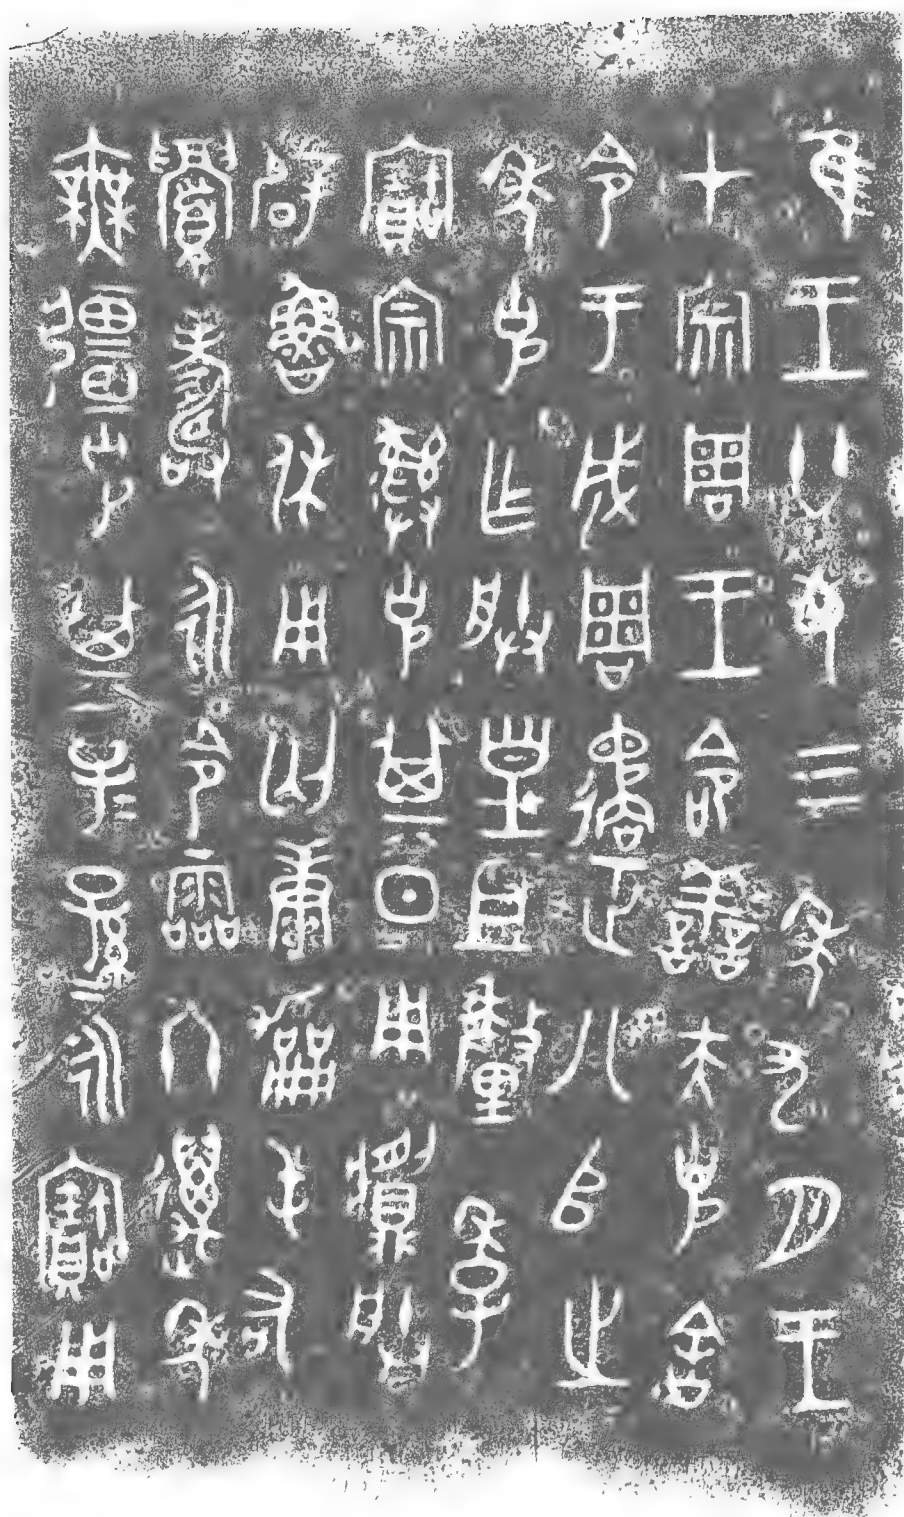 隹王廿又三年九月王
才宗周王命善夫克舍
令于成周遹正八𠂤之
年克乍朕皇且釐季
寶宗彝克其日用𩰫朕
辟魯休用匃康勵屯右
眉壽永令霝冬萬年
無疆克其子=孫=永寶用